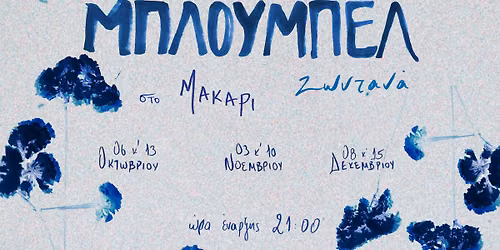 ΜΠΛΟΥΜΠΕΛ
στο ΜΑΚΑΡΙ ζωντανά
06 κ' 13 ΟΚΤΩΒΡΙΟΥ
03 κ' 10 ΝΟΕΜΒΡΙΟΥ
08 κ' 15 ΔΕΚΕΜΒΡΙΟΥ
ώρα έναρξης 21:00